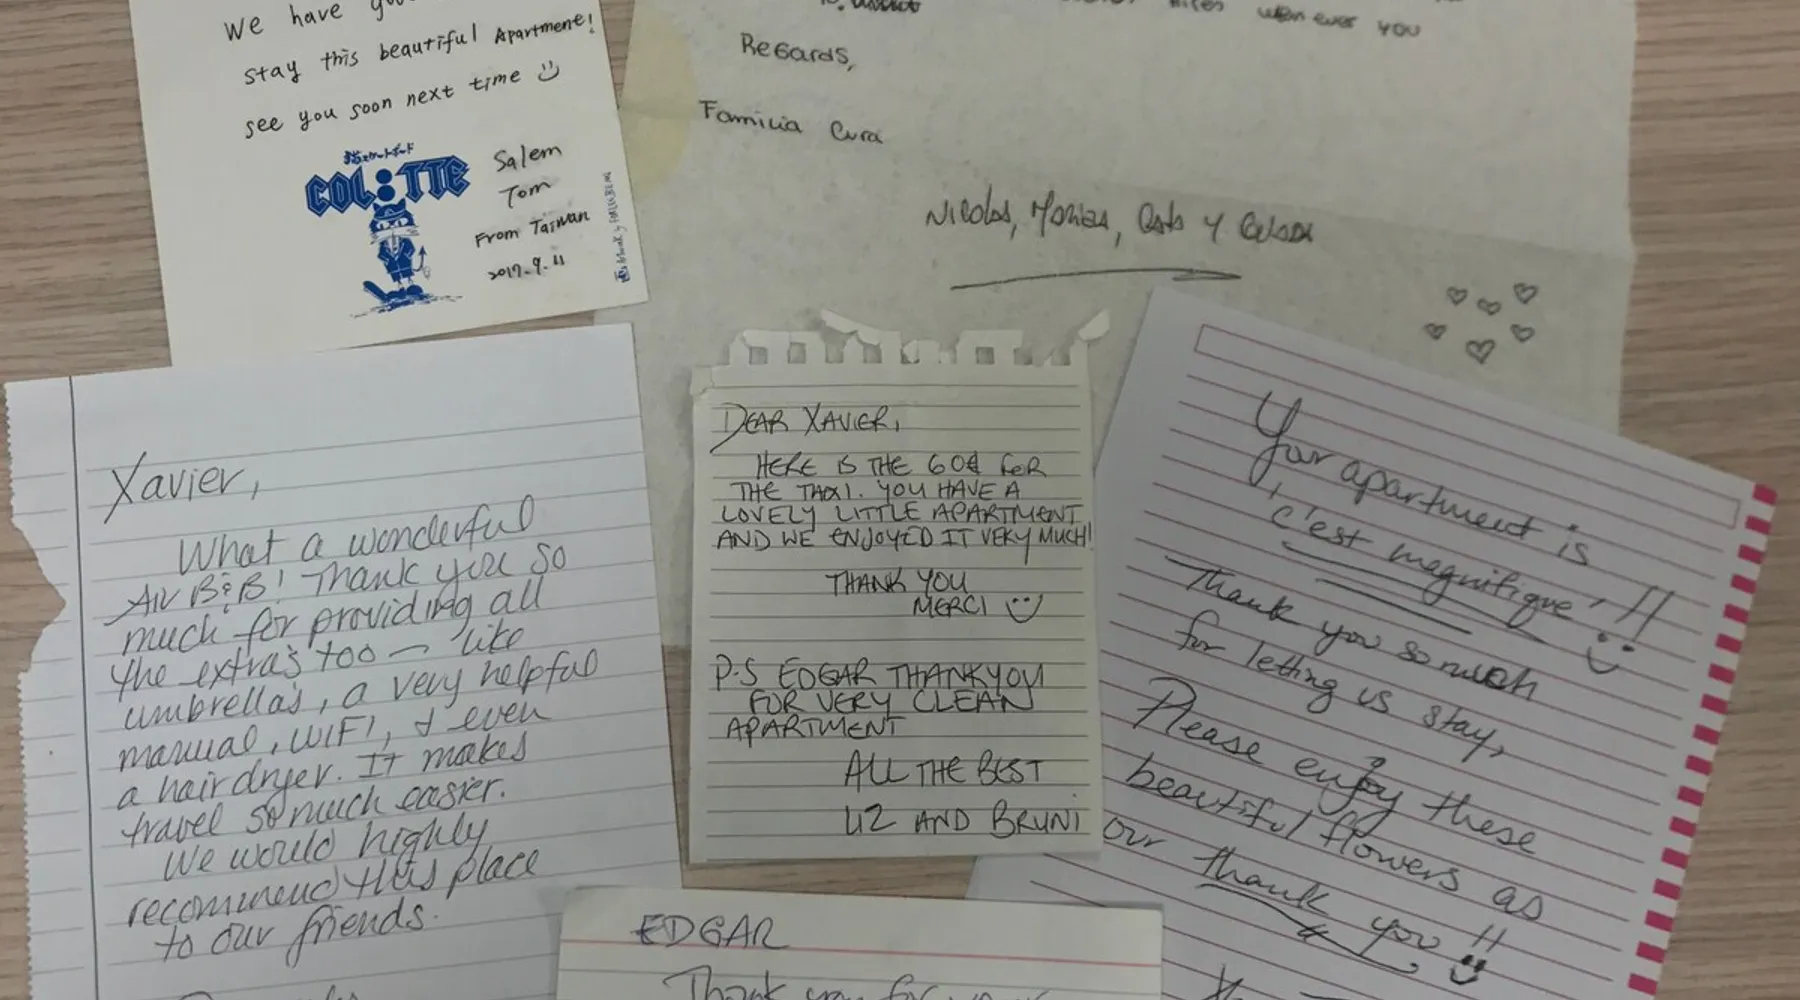 We have
stay this beautiful Apartment!
see you soon next time
COLOTTE
Salem
Tom
From Taiwan
2017.9.11
whenever you
Regards,
Familia Cura
Nicolas,
Xavier,
What a wonderful
Air B&B! Thank you so
much for providing all
the extra's too - like
umbrella's, a very helpful
manual, WIFI, & even
a hair dryer. It makes
travel so much easier.
We would highly
recommend this place
to our friends.
DEAR XAVIER,
HERE IS THE 60€ FOR
THE TAXI. YOU HAVE A
LOVELY LITTLE APARTMENT
AND WE ENJOYED IT VERY MUCH!
THANK YOU
MERCI
P.S EDGAR THANKYOU
FOR VERY CLEAN
APARTMENT
ALL THE BEST
LIZ AND BRUNI
Your apartment is
c'est magnifique'!!
Thank you so much
for letting us stay,
Please enjoy these
beautiful flowers as
our thank you!!
EDGAR
Thank you for